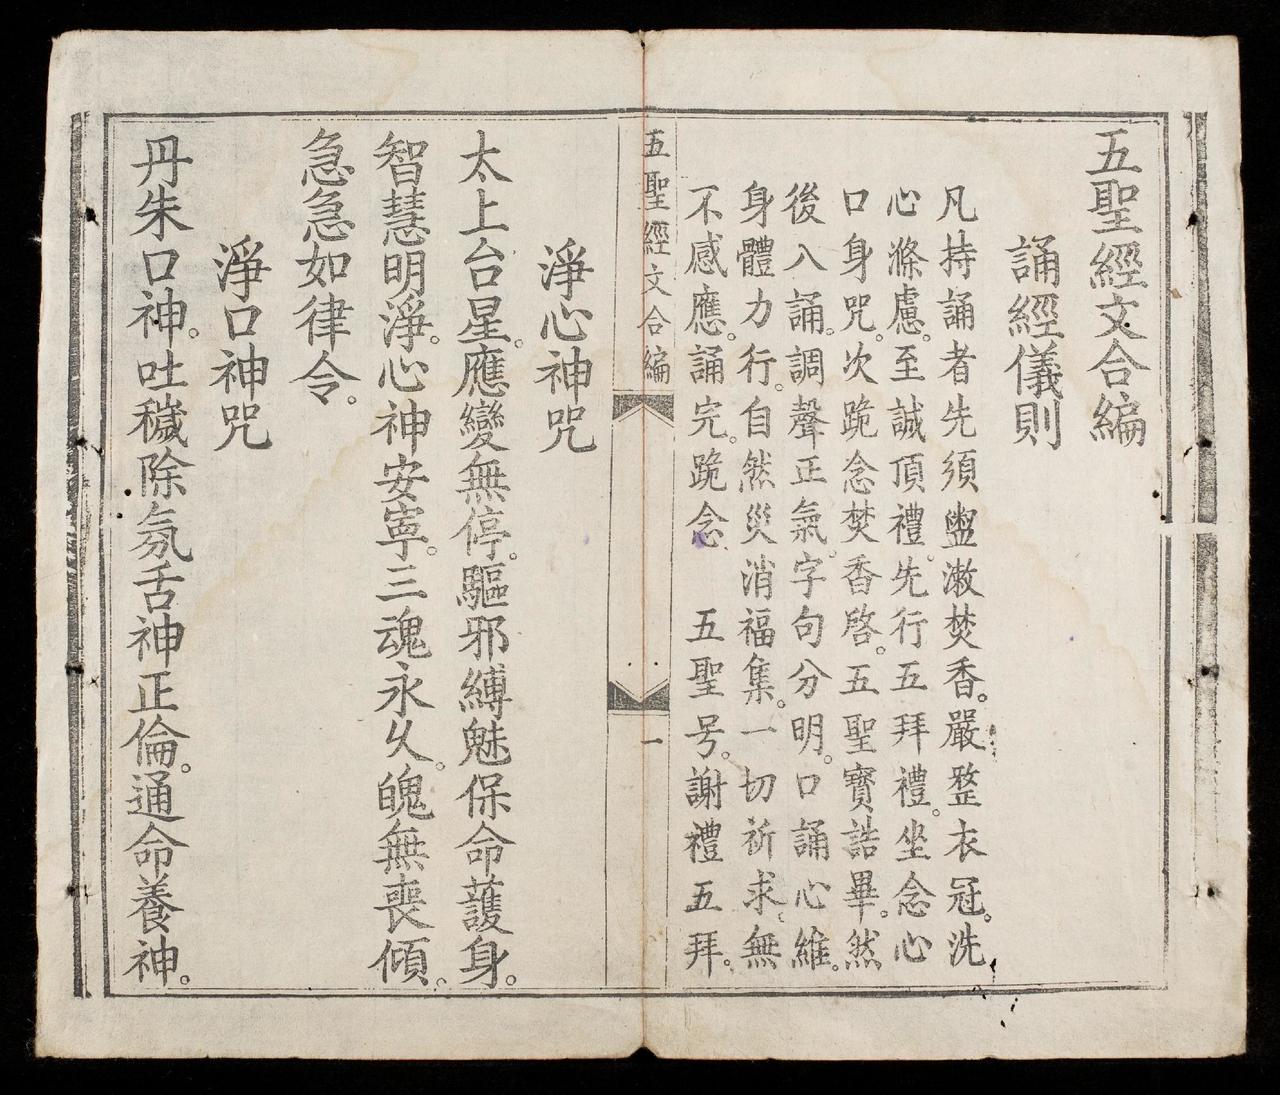 五聖經文合編
誦經儀則
凡持誦者先須盥漱焚香。嚴整衣冠。洗
心滌慮。至誠頂禮。先行五拜禮。坐念心
口身咒。次跪念焚香啓。五聖寶誥畢。然
後入誦。調聲正氣。字句分明。口誦心維。
身體力行。自然災消福集。一切祈求。無
不感應。誦完。跪念　五聖号。謝禮五拜。
五聖經文合編　一
淨心神咒
太上台星。應變無停。驅邪縛魅保命護身。
智慧明淨。心神安寧。三魂永久。魄無喪傾。
急急如律令。
淨口神咒
丹朱口神。吐穢除氛舌神正倫。通命養神。